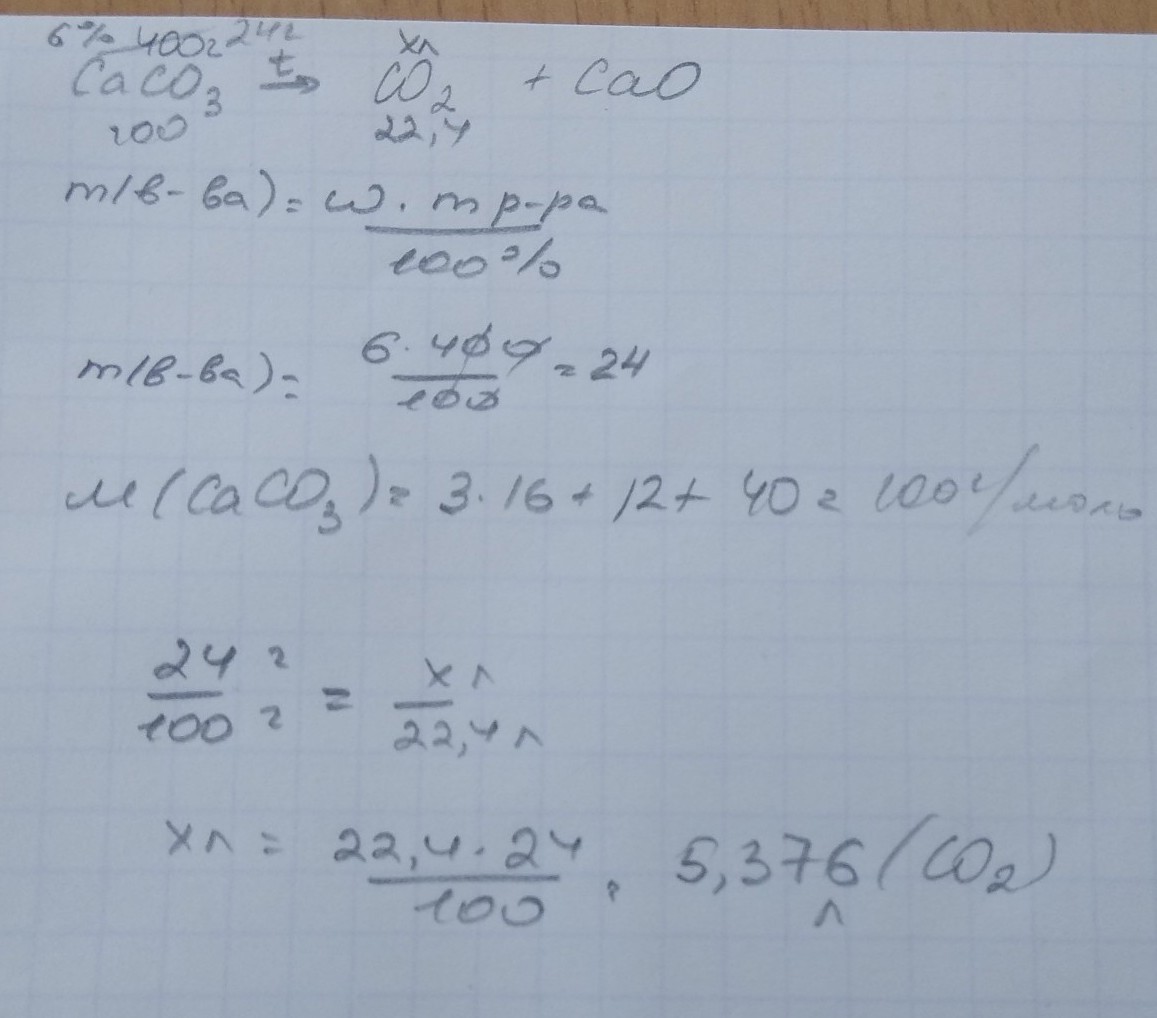 6% 400г 24г хл
CaCO₃ t→ CO₂ + CaO
100 22,4
m(в-ва) = ω · m р-ра / 100%
m(в-ва) = 6 · 400 / 100 = 24
M(CaCO₃) = 3 · 16 + 12 + 40 = 100 г/моль
24 г / 100 г = х л / 22,4 л
х л = 22,4 · 24 / 100 = 5,376 (CO₂)
л